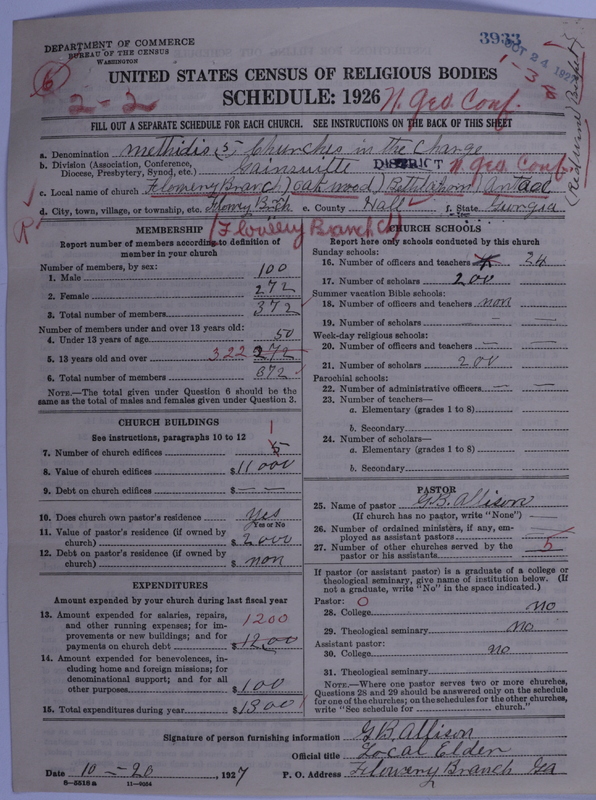 DEPARTMENT OF COMMERCE
BUREAU OF THE CENSUS
WASHINGTON
3933
OCT 24 192
6
2-2
1-38
UNITED STATES CENSUS OF RELIGIOUS BODIES
SCHEDULE: 1926
N. Geo. Conf.
FILL OUT A SEPARATE SCHEDULE FOR EACH CHURCH. SEE INSTRUCTIONS ON THE BACK OF THIS SHEET
a. Denomination methidis 5 Churches in the Charge
b. Division (Association, Conference, Diocese, Presbytery, Synod, etc.) Gainsville DISTRICT N. Geo. Conf.
c. Local name of church Flowery Branch) Oakwood) Bethlahom) Antaoc
d. City, town, village, or township, etc. Flowery Brch e. County Hall f. State Georgia
R
(Flowery Branch)
MEMBERSHIP
Report number of members according to definition of member in your church
Number of members, by sex:
1. Male 100
2. Female 272
3. Total number of members 372
Number of members under and over 13 years old:
4. Under 13 years of age 50
5. 13 years old and over 322 272
6. Total number of members 372
NOTE.—The total given under Question 6 should be the same as the total of males and females given under Question 3.
CHURCH BUILDINGS
See instructions, paragraphs 10 to 12
7. Number of church edifices 1 5
8. Value of church edifices $11000
9. Debt on church edifices $— —
10. Does church own pastor's residence yes
Yes or No
11. Value of pastor's residence (if owned by church) $2000
12. Debt on pastor's residence (if owned by church) $ non
EXPENDITURES
Amount expended by your church during last fiscal year
13. Amount expended for salaries, repairs, and other running expenses; for improvements or new buildings; and for payments on church debt 1200 $1200
14. Amount expended for benevolences, including home and foreign missions; for denominational support; and for all other purposes $100
15. Total expenditures during year $1300
CHURCH SCHOOLS
Report here only schools conducted by this church
Sunday schools:
16. Number of officers and teachers 24
17. Number of scholars 200
Summer vacation Bible schools:
18. Number of officers and teachers non
19. Number of scholars — —
Week-day religious schools:
20. Number of officers and teachers — —
21. Number of scholars 200
Parochial schools:
22. Number of administrative officers — —
23. Number of teachers—
a. Elementary (grades 1 to 8)
b. Secondary
24. Number of scholars—
a. Elementary (grades 1 to 8)
b. Secondary
PASTOR
25. Name of pastor G.B. Allison
(If church has no pastor, write "None")
26. Number of ordained ministers, if any, employed as assistant pastors
27. Number of other churches served by the pastor or his assistants 5
If pastor (or assistant pastor) is a graduate of a college or theological seminary, give name of institution below. (If not a graduate, write "No" in the space indicated.)
Pastor: 0
28. College no
29. Theological seminary no
Assistant pastor:
30. College no
31. Theological seminary
NOTE.—Where one pastor serves two or more churches, Questions 28 and 29 should be answered only on the schedule for one of the churches; on the schedules for the other churches, write "See schedule for church."
Signature of person furnishing information G B Allison
Official title Local Elder
Date 10 - 20, 1927 P. O. Address Flowery Branch Ga
6—5516 a 11—9384